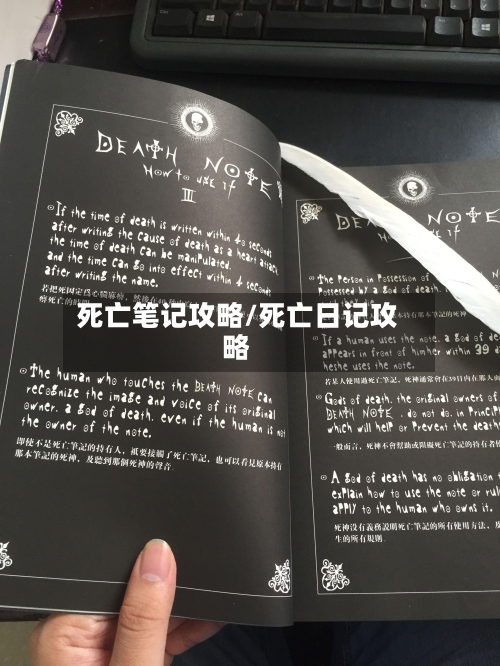 DEATH NOTE
How to use it
III
If the time of death is written within 40 seconds
after writing the cause of death as a heart attack,
the time of death can be manipulated,
and the time can go into effect within 40 seconds
after writing the name.
若把死因定爲心臟麻痺,然後在40秒內
死亡笔记攻略/死亡日记攻
略
The human who touches the DEATH NOTE can
recognize the image and voice of its original
owner, a god of death, even if the human is not
the owner of the note.
即使不是死亡筆記的持有人,祇要接觸了死亡筆記,也可以看見原本持有
那本筆記的死神,及聽到那個死神的聲音.
DEATH NOTE
The person in possession of
possessed by a god of death,
If a human uses the note, a god of de
appears in front of him/her within 39 d
he/she uses the note.
若某人使用過死亡筆記,死神通常會在39日內在那人面
Gods of death, the original owners of
DEATH NOTE, do not do, in princip
which will help or prevent the deaths
一般而言,死神不會幫助或阻礙死亡筆記的持有者使
A god of death has no obligation t
explain how to use the note or rul
apply to the human who owns it.
死神沒有義務說明死亡筆記的所有使用方法,及
生的所有規則.